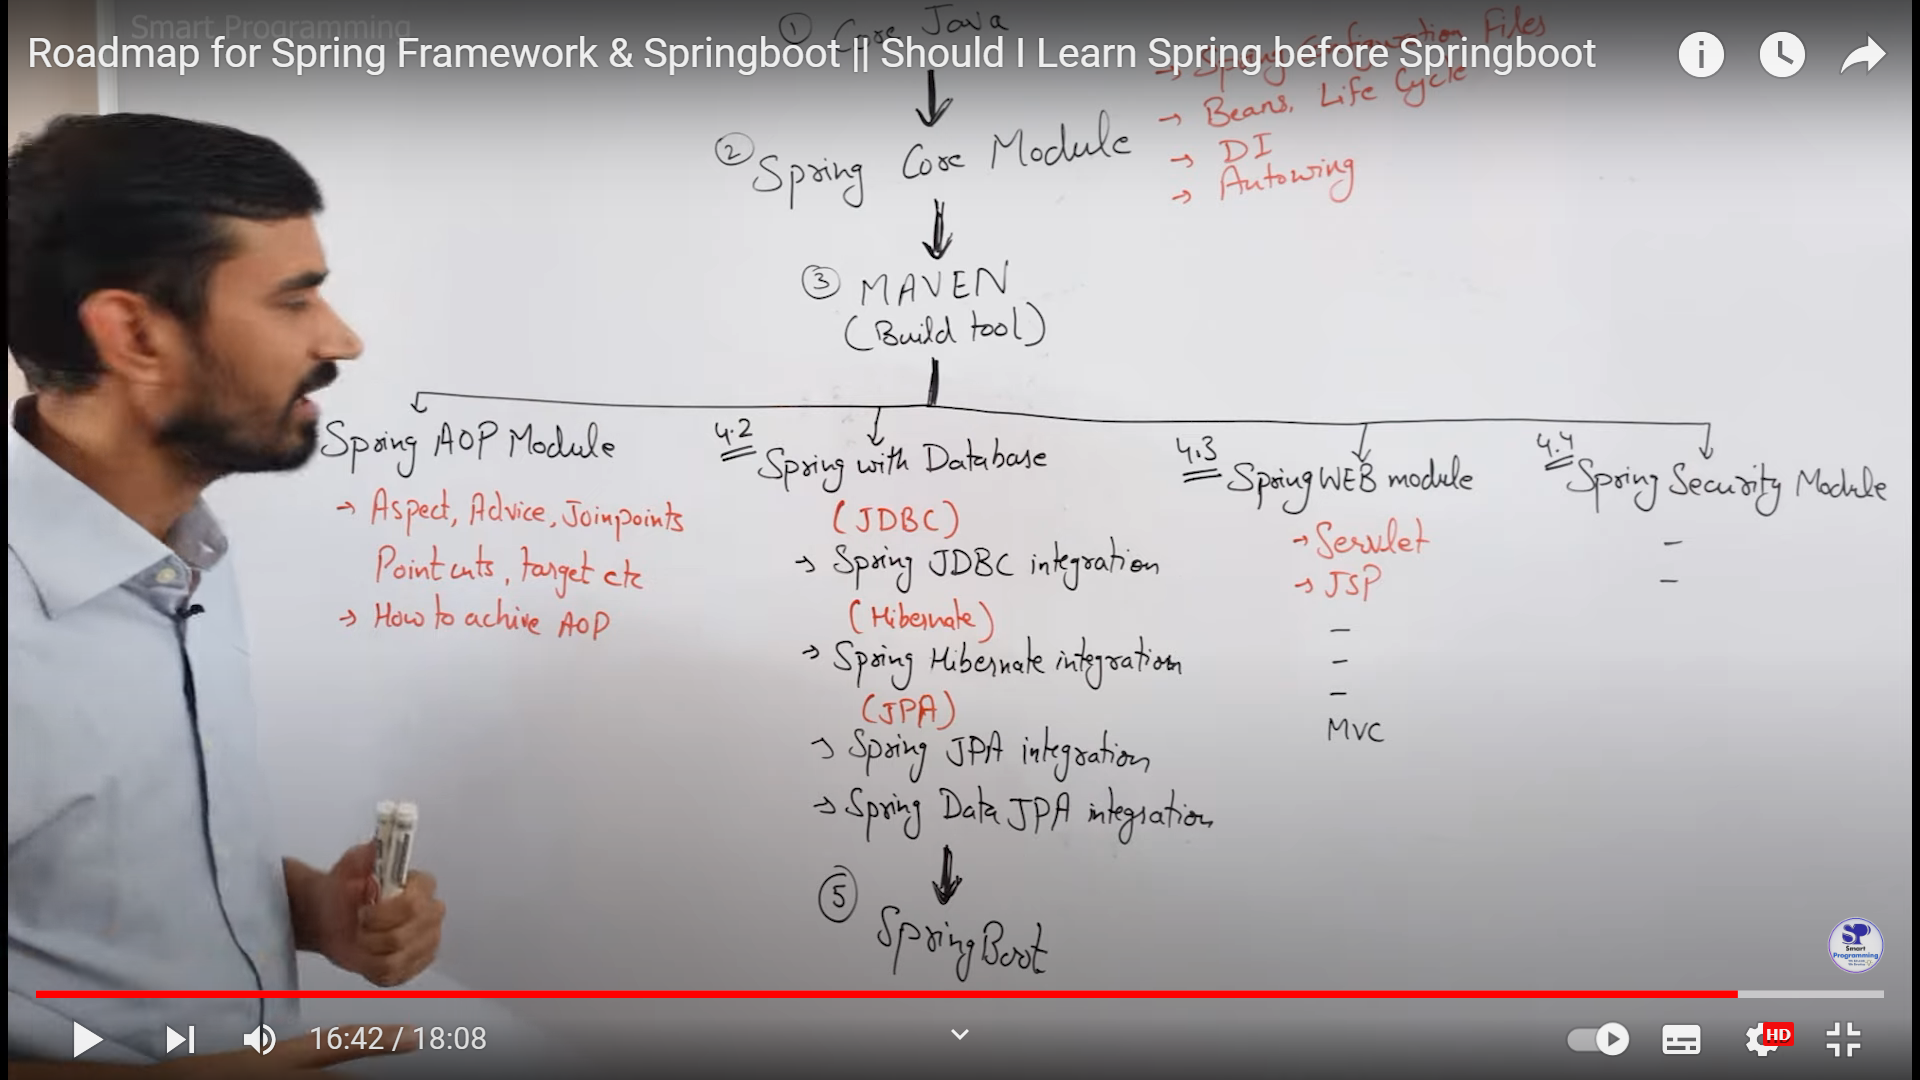 Smart Programming
Roadmap for Spring Framework & Springboot || Should I Learn Spring before Springboot
① Core Java
→ Spring Configuration Files
→ Beans, Life Cycle
→ DI
→ Autowing
② Spring Core Module
③ MAVEN
(Build tool)
Spring AOP Module
→ Aspect, Advice, Joinpoints
Point cuts, target etc
→ How to achive AOP
4.2
Spring with Database
(JDBC)
→ Spring JDBC integration
(Hibernate)
→ Spring Hibernate integration
(JPA)
→ Spring JPA integration
→ Spring Data JPA integration
4.3
Spring WEB module
→ Servlet
→ JSP
–
–
–
MVC
4.4
Spring Security Module
–
–
⑤
Spring Boot
SP
Smart
Programming
16:42 / 18:08
HD